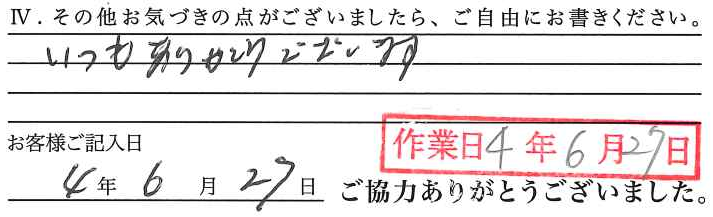 Ⅳ．その他お気づきの点がございましたら、ご自由にお書きください。
いつもありがとうございます
お客様ご記入日
作業日4年6月27日
4年6月27日
ご協力ありがとうございました。